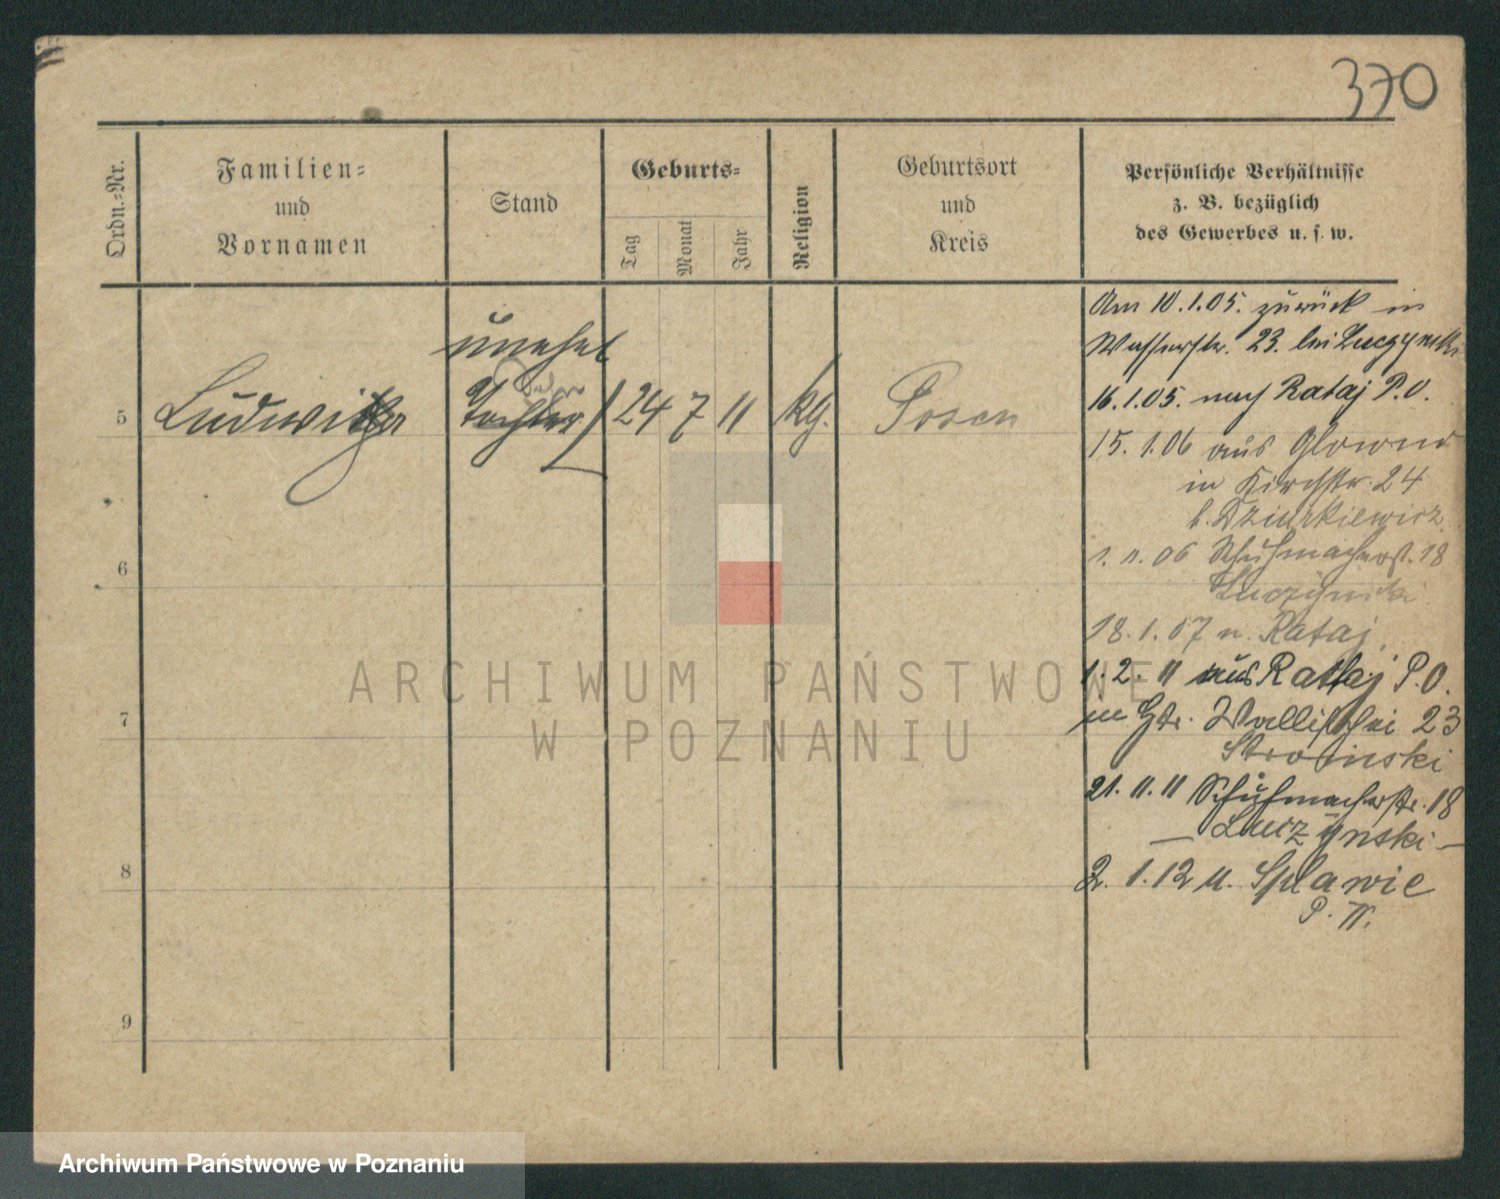 370
Ordn.-Nr.
Familien-
und
Vornamen
Stand
Geburts-
Tag
Monat
Jahr
Religion
Geburtsort
und
Kreis
Persönliche Verhältnisse
z. B. bezüglich
des Gewerbes u. s. w.
unehel
5 Ludwika Tochter 24 7 11 kg. Posen
6
7
8
9
Am 10.1.05. zurück in
Wasserstr. 23. bei Luczynski
16.1.05. nach Rataj P.O.
15. 1.06 aus Glowno
in Kirchstr. 24
b. Dziurkiewicz
1. 11. 06 Schuhmacherst. 18
Luczynski
18.1.07 n. Rataj
1. 2. 11 aus Rataj P.O.
in Gr. Wallischei 23
Strozinski
21. 11. 11 Schuhmacherstr. 18
— Luczynski —
2. 1. 12 n. Splawie
P. W.
ARCHIWUM PAŃSTWOWE
W POZNANIU
Archiwum Państwowe w Poznaniu